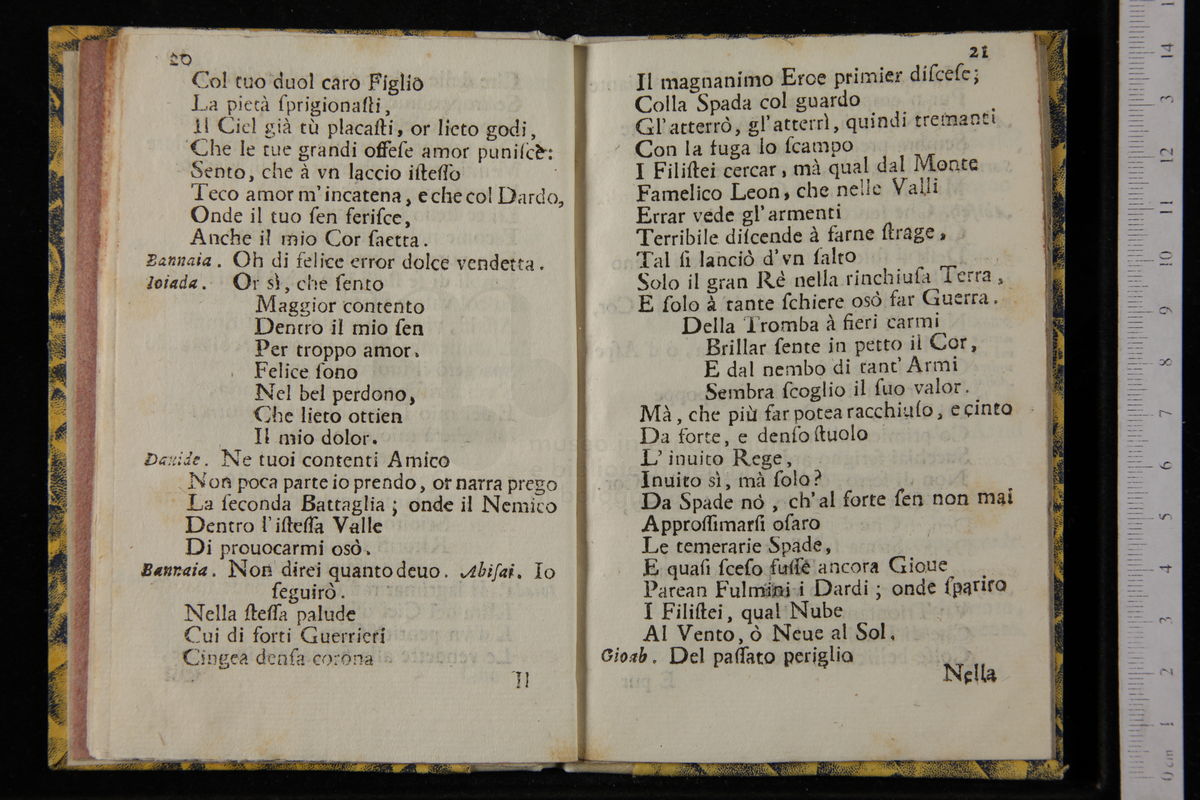 20
Col tuo duol caro Figlio
La pietà ſprigionaſti,
Il Ciel già tù placaſti, or lieto godi,
Che le tue grandi offeſe amor puniſce:
Sento, che à vn laccio iſteſſo
Teco amor m'incatena, e che col Dardo,
Onde il tuo ſen feriſce,
Anche il mio Cor ſaetta.
Bannaia. Oh di felice error dolce vendetta.
Ioiada. Or sì, che ſento
Maggior contento
Dentro il mio ſen
Per troppo amor.
Felice ſono
Nel bel perdono,
Che lieto ottien
Il mio dolor.
Dauide. Ne tuoi contenti Amico
Non poca parte io prendo, or narra prego
La ſeconda Battaglia; onde il Nemico
Dentro l'iſteſſa Valle
Di prouocarmi osò.
Bannaia. Non direi quanto deuo. Abiſai. Io
ſeguirò.
Nella ſteſſa palude
Cui di forti Guerrieri
Cingea denſa corona
Il
21
Il magnanimo Eroe primier diſceſe;
Colla Spada col guardo
Gl'atterrò, gl'atterrì, quindi tremanti
Con la fuga lo ſcampo
I Filiſtei cercar, mà qual dal Monte
Famelico Leon, che nelle Valli
Errar vede gl'armenti
Terribile diſcende à farne ſtrage,
Tal ſi lanciò d'vn ſalto
Solo il gran Rè nella rinchiuſa Terra,
E ſolo à tante ſchiere osò far Guerra.
Della Tromba à fieri carmi
Brillar ſente in petto il Cor,
E dal nembo di tant' Armi
Sembra ſcoglio il ſuo valor.
Mà, che più far potea racchiuſo, e cinto
Da forte, e denſo ſtuolo
L'inuito Rege,
Inuito sì, mà ſolo?
Da Spade nò, ch'al forte ſen non mai
Approſſimarſi oſaro
Le temerarie Spade,
E quaſi ſceſo fuſſe ancora Gioue
Parean Fulmini i Dardi; onde ſpariro
I Filiſtei, qual Nube
Al Vento, ò Neue al Sol.
Gioab. Del paſſato periglio
Nella
0 cm 1 2 3 4 5 6 7 8 9 10 11 12 3 14